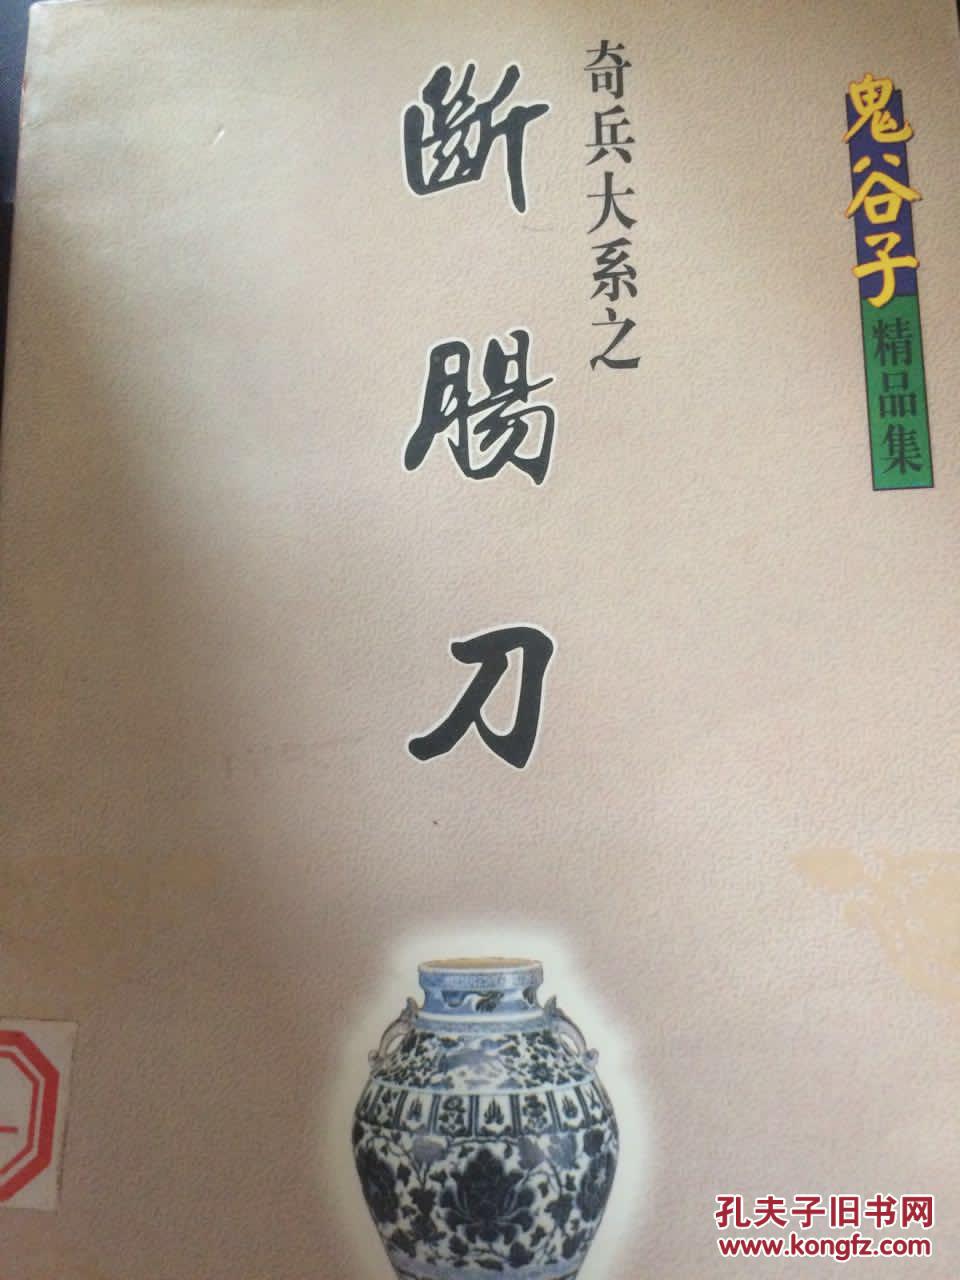 鬼谷子
精品集
奇兵大系之
斷腸刀
孔夫子旧书网
www.kongfz.com